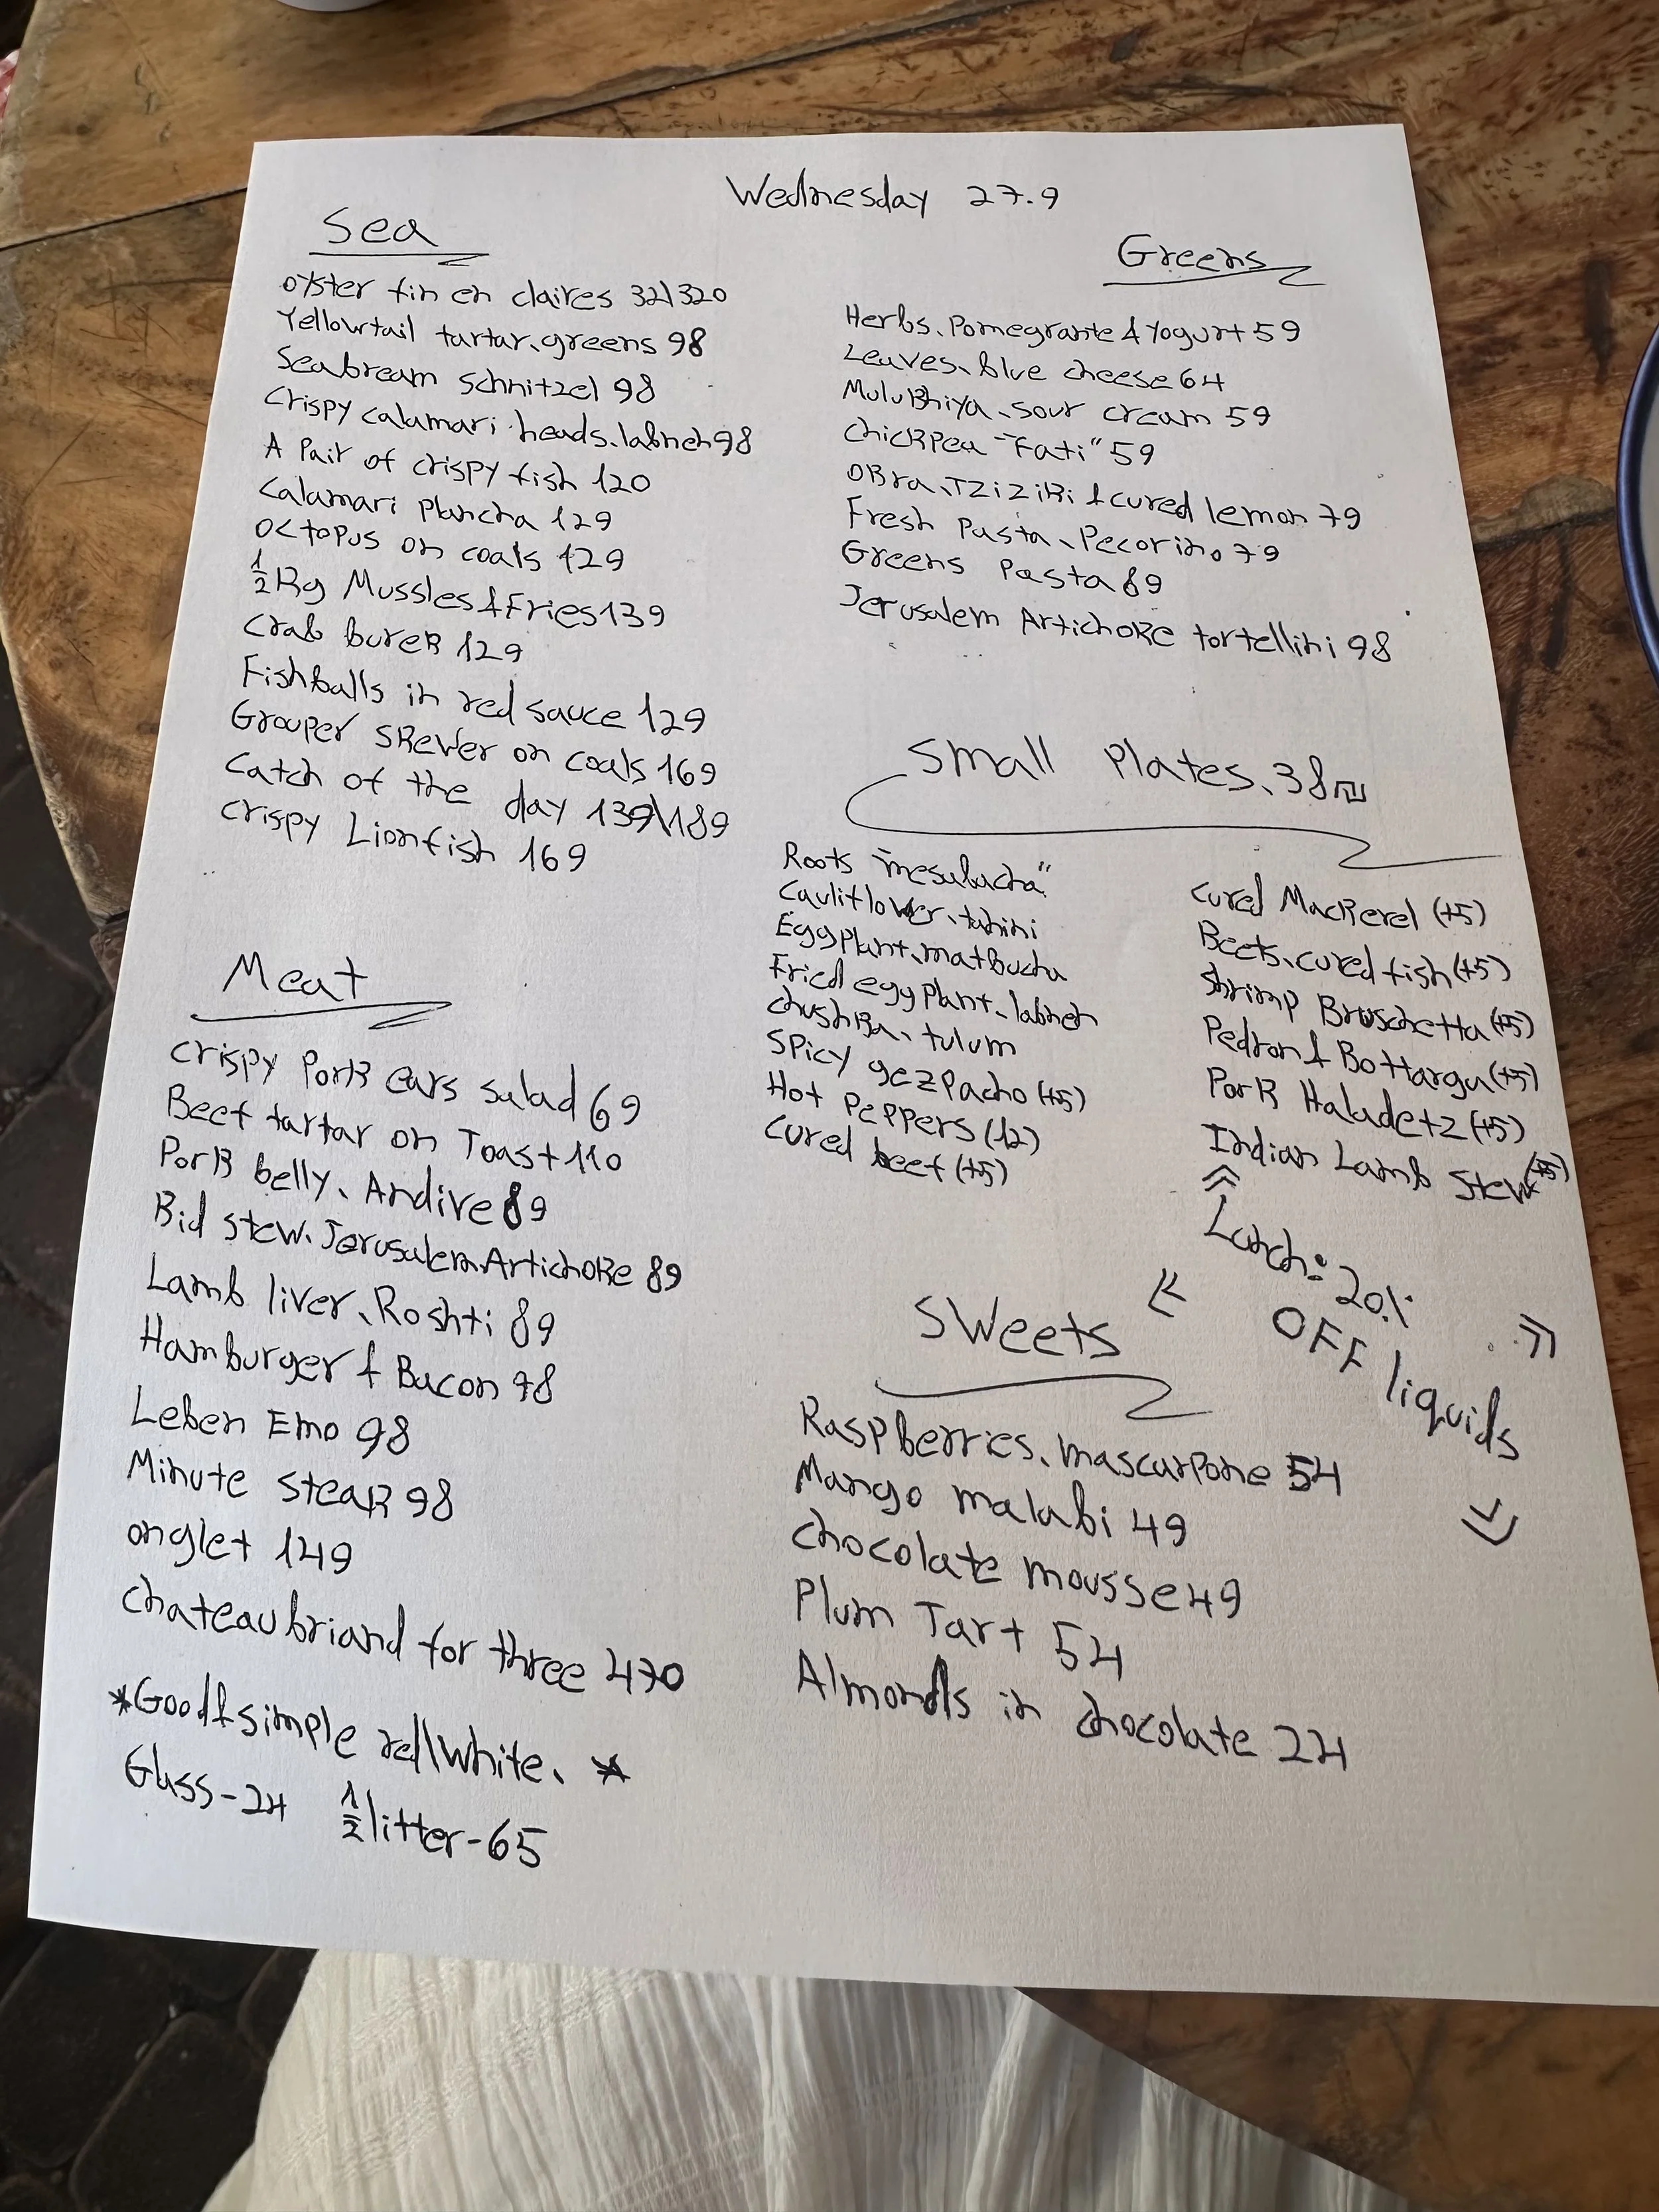 Wednesday 27.9
Sea
oyster fin en claires 32\320
Yellowtail tartar, greens 98
Seabream schnitzel 98
Crispy calamari heads, labneh 98
A Pair of crispy fish 120
Calamari Plancha 129
Octopus on coals 129
½ kg Mussles & Fries 139
Crab burek 129
Fishballs in red sauce 129
Grouper skewer on coals 169
Catch of the day 139\189
Crispy Lionfish 169
Meat
Crispy Pork ears salad 69
Beef tartar on Toast 110
Pork belly, Andive 89
Bid stew, Jerusalem Artichoke 89
Lamb liver, Roshti 89
Hamburger & Bacon 98
Leben Emo 98
Minute steak 98
onglet 149
Chateaubriand for three 470
*Good & simple red\white, *
Glass-24 ½ litter-65
Greens
Herbs, Pomegrante & Yogurt 59
Leaves, blue cheese 64
Mulukhiya, sour cream 59
Chickpea "Fati" 59
Okra, Tziziki & cured lemon 79
Fresh Pasta, Pecorino 79
Greens Pasta 89
Jerusalem Artichoke tortellini 98
Small Plates, 38₪
Roots "mesabacha"
Cauliflower, tahini
Eggplant, matbucha
Fried eggplant, labneh
Chushka, tulum
Spicy gezpacho (+5)
Hot Peppers (12)
Cured beef (+5)
Cured Mackerel (+5)
Beets, cured fish (+5)
Shrimp Bruschetta (+5)
Pedron & Bottarga (+5)
Pork Haladetz (+5)
Indian Lamb Stew (+5)
Lunch: 20%
OFF liquids
Sweets
Raspberries, mascarpone 54
Mango malabi 49
Chocolate mousse 49
Plum Tart 54
Almonds in chocolate 24